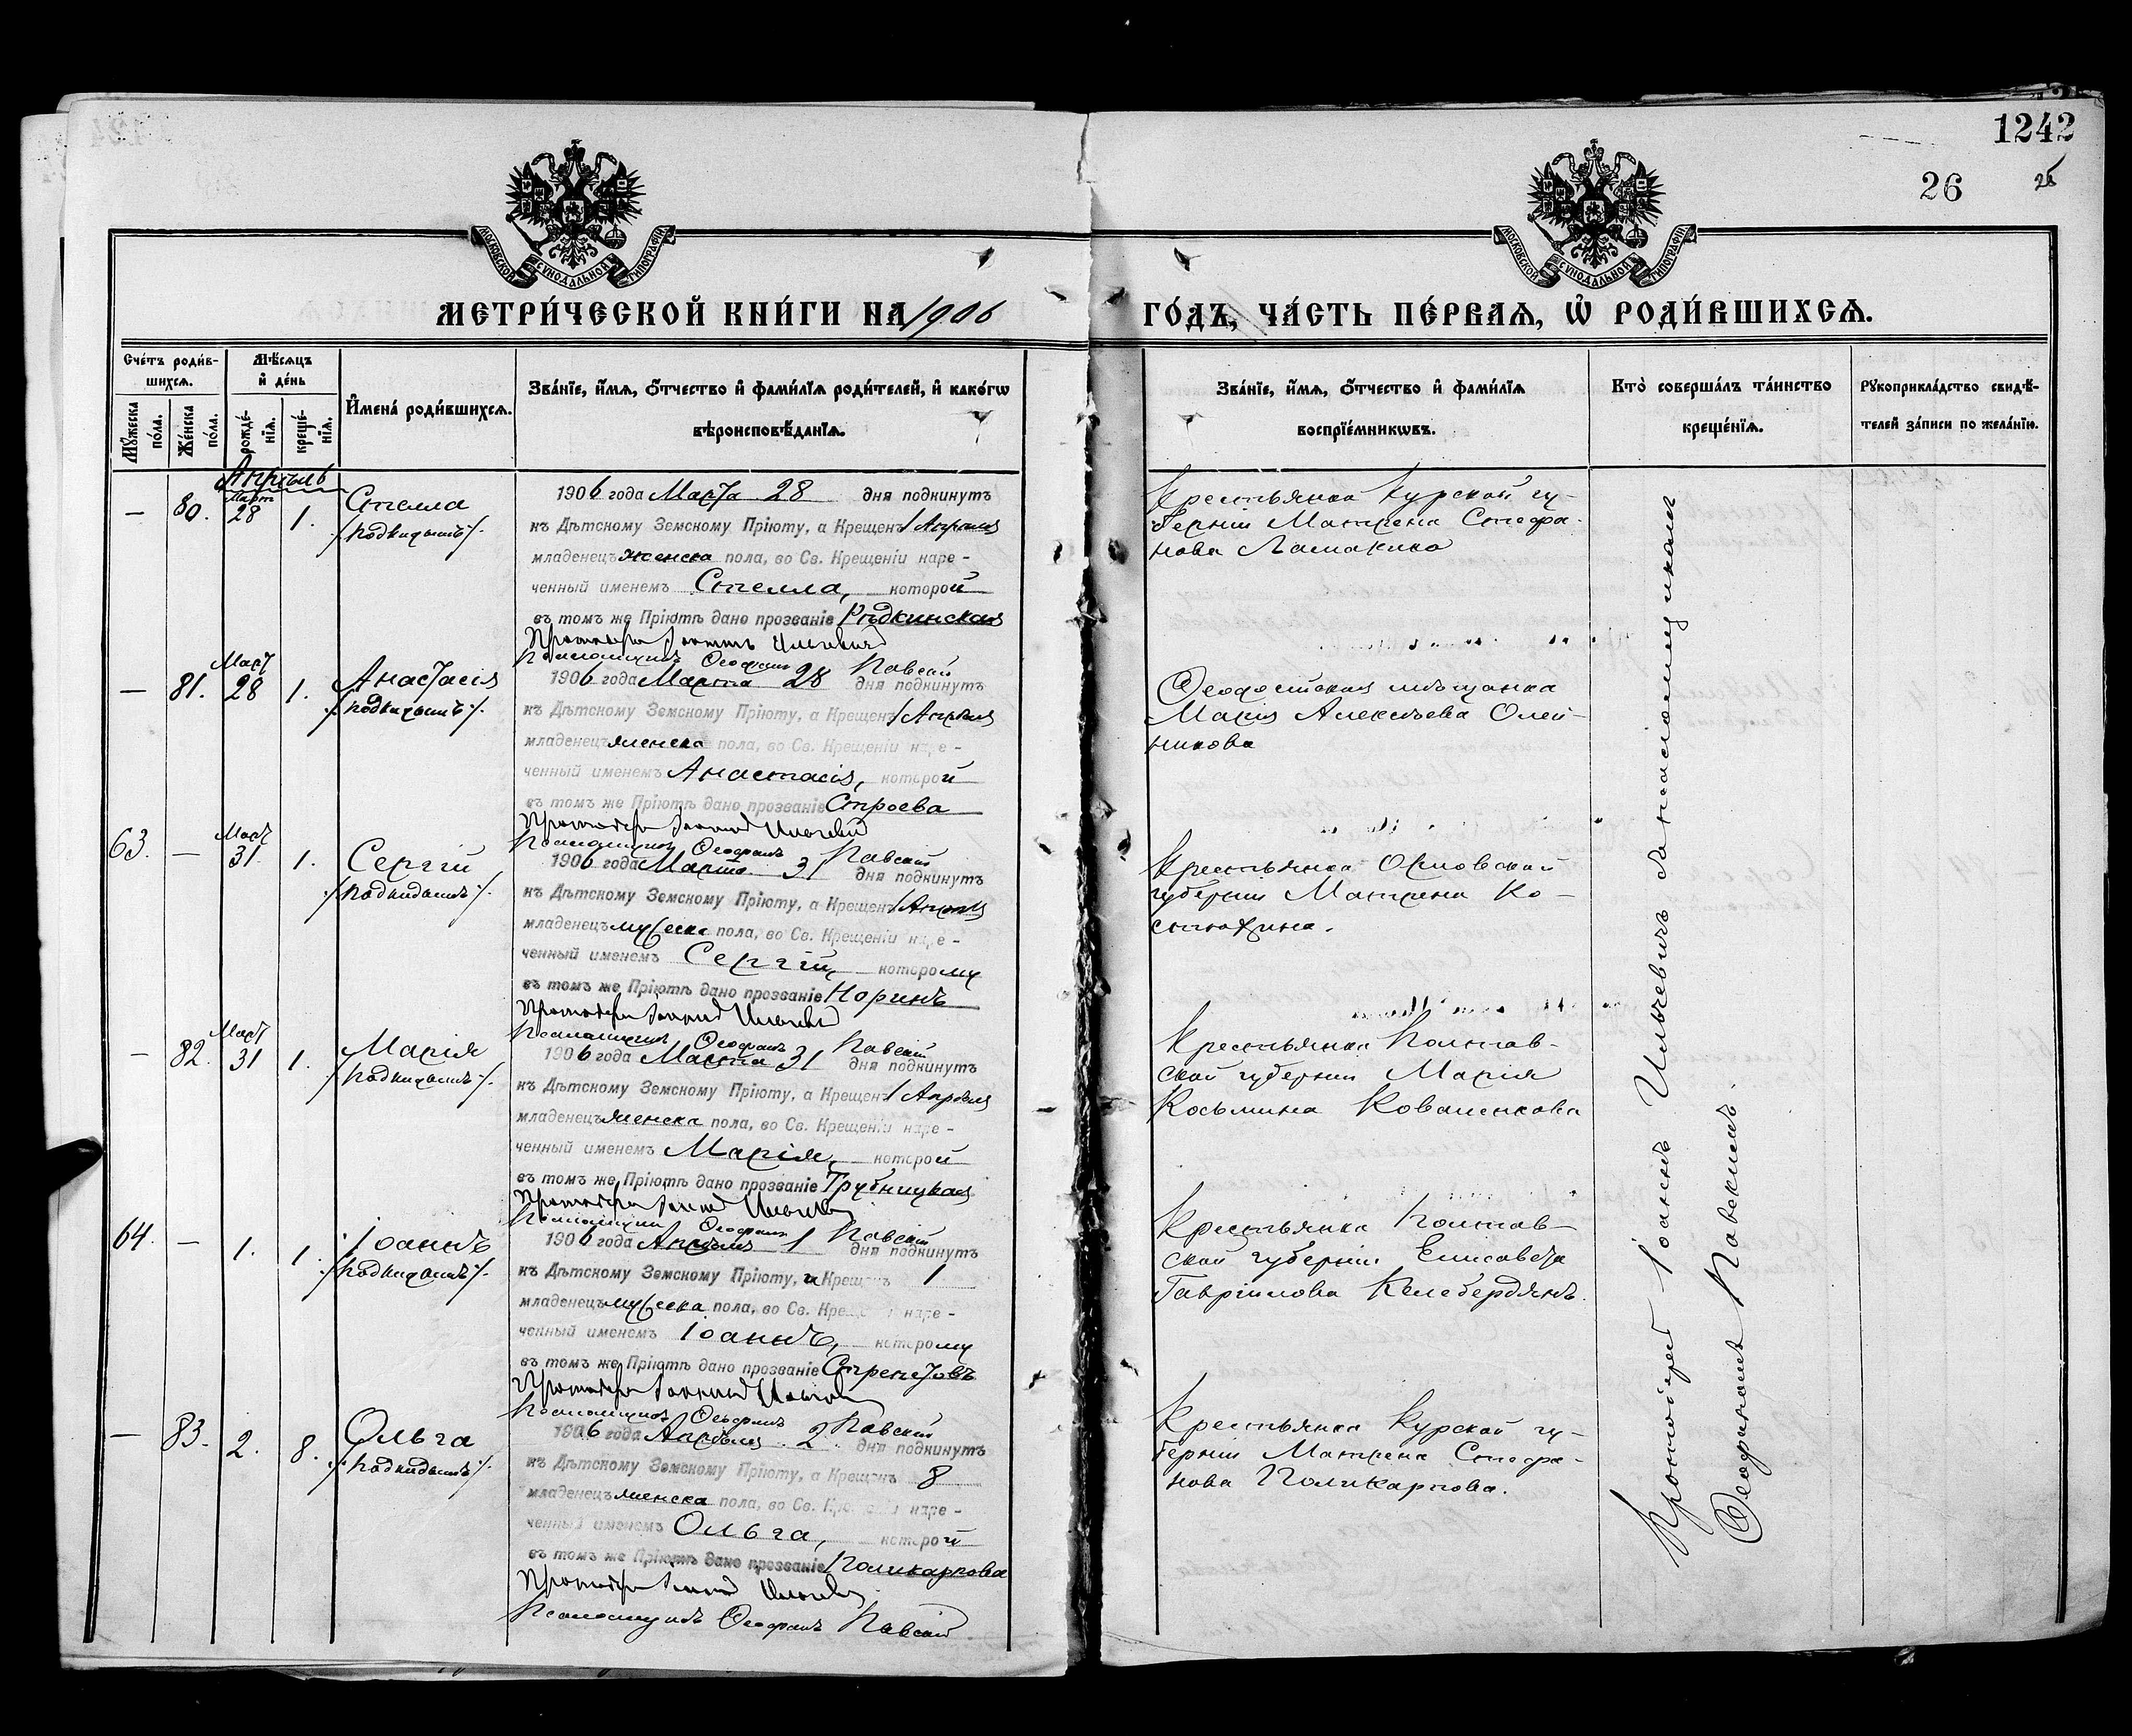 1242
26
26
МОСКОВСКОЙ СѴНОДАЛЬНОЙ ТИПОГРАФІИ
МОСКОВСКОЙ СѴНОДАЛЬНОЙ ТИПОГРАФІИ
МЕТРИ́ЧЕСКОЙ КНИ́ГИ НА 1906
ГО́ДЪ, ЧА́СТЬ ПЕ́РВАѦ, Ѡ҆ РОДИ́ВШИХСѦ.
Сче́тъ роди́в-
шихсѧ.
Мꙋ́жеска по́ла.
Же́нска по́ла.
Мѣ́сѧцъ
и҆ де́нь
рожде́-
нїѧ.
креще́-
нїѧ.
И҆мена̀ роди́вшихсѧ.
Зва́нїе, и҆́мѧ, ѻ҆́тчество и҆ фами́лїѧ роди́телей, и҆ како́гѡ
вѣроисповѣ́данїѧ.
Зва́нїе, и҆́мѧ, ѻ҆́тчество и҆ фами́лїѧ
воспрїе́мникѡвъ.
Кто̀ соверша́лъ та́инство
креще́нїѧ.
Рꙋкоприкла́дство свидѣ́-
телей за́писи по жела́нїю.
Апрѣль
— 80. Март 28 1. Стелла
/подкидышъ/.
1906 года Марта 28 дня подкинутъ
къ Дѣтскому Земскому Пріюту, а Крещенъ 1 Апрѣля
младенецъ женска пола, во Св. Крещеніи наре-
ченный именемъ Стелла, которой
въ томъ же Пріютѣ дано прозваніе Рѣдкинская
Протоіерей Іоаннъ Ильчевичъ
Псаломщикъ Ѳеофилъ Павскій
Крестьянка Курской гу-
берніи Матрена Стефа-
нова Ламакина
— 81. Март 28 1. Анастасія
/подкидышъ/.
1906 года Марта 28 дня подкинутъ
къ Дѣтскому Земскому Пріюту, а Крещенъ 1 Апрѣля
младенецъ женска пола, во Св. Крещеніи наре-
ченный именемъ Анастасія, которой
въ томъ же Пріютѣ дано прозваніе Строева
Протоіерей Іоаннъ Ильчевичъ
Псаломщикъ Ѳеофилъ Павскій
Ѳеодосійская мѣщанка
Марія Алексѣева Олей-
никова
63. — Март 31. 1. Сергій
/подкидышъ/.
1906 года Марта 31 дня подкинутъ
къ Дѣтскому Земскому Пріюту, а Крещенъ 1 Апрѣля
младенецъ мужеска пола, во Св. Крещеніи наре-
ченный именемъ Сергій, которому
въ томъ же Пріютѣ дано прозваніе Норинъ
Протоіерей Іоаннъ Ильчевичъ
Псаломщикъ Ѳеофилъ Павскій
Крестьянка Орловской
губерніи Матрена Ко-
— 82. Март 31 1. Марія
/подкидышъ/.
1906 года Марта 31 дня подкинутъ
къ Дѣтскому Земскому Пріюту, а Крещенъ 1 Апрѣля
младенецъ женска пола, во Св. Крещеніи наре-
ченный именемъ Марія, которой
въ томъ же Пріютѣ дано прозваніе Трубницкая
Протоіерей Іоаннъ Ильчевичъ
Псаломщикъ Ѳеофилъ Павскій
Крестьянка Полтав-
ской губерніи Марія
Косьмина Коваленкова
64. — 1. 1. Іоаннъ
/подкидышъ/.
1906 года Апрѣля 1 дня подкинутъ
къ Дѣтскому Земскому Пріюту, и Крещенъ 1
младенецъ мужеска пола, во Св. Крещеніи наре-
ченный именемъ Іоаннъ, которому
въ томъ же Пріютѣ дано прозваніе Стрепетовъ
Протоіерей Іоаннъ Ильчевичъ
Псаломщикъ Ѳеофилъ Павскій
Крестьянка Полтав-
ской губерніи Елисавета
Гавріилова Келебердянъ.
— 83. 2. 8. Ольга
/подкидышъ/.
1906 года Апрѣля 2 дня подкинутъ
къ Дѣтскому Земскому Пріюту, а Крещенъ 8
младенецъ женска пола, во Св. Крещеніи наре-
ченный именемъ Ольга, которой
въ томъ же Пріютѣ дано прозваніе Поликарпова
Протоіерей Іоаннъ Ильчевичъ
Псаломщикъ Ѳеофилъ Павскій
Крестьянка Курской гу-
берніи Матрена Стефа-
нова Поликарпова.
Протоіерей Іоаннъ Ильчевичъ съ псаломщикомъ
Ѳеофиломъ Павскимъ.